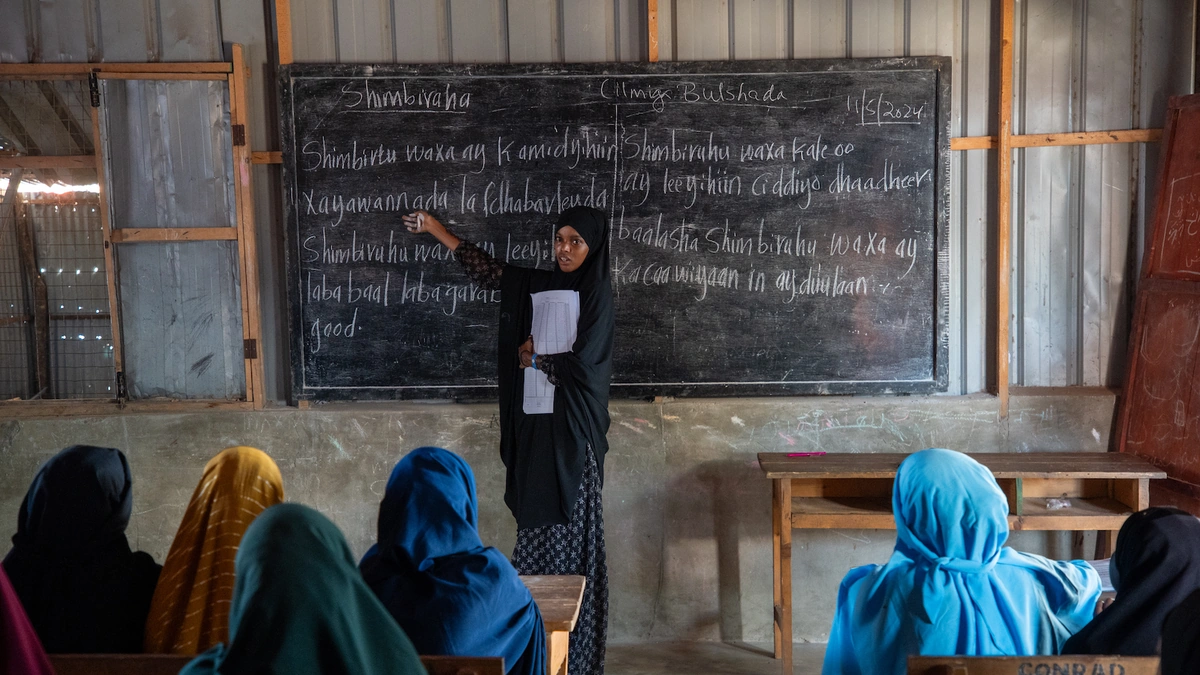 Shimbiraha
Cilmiga Bulshada
11/5/2024
Shimbirtu waxa ay kamidyihiin
xayawannada la fdhabarleyda
Shimbiruhu waxa ay leeyi
laba baal laba garab
good.
Shimbiruhu waxa kale oo
ay leeyihiin ciddiyo dhaadheer.
baalasha Shimbiruhu waxa ay
Kacaawiyaan in ay duulaan.
CONRAD